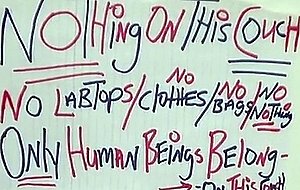 NOTHING ON THIS COUCH
NO LABTOPS/NO CLOTHES/NO BAGS/NO NOTHING
ONLY HUMAN BEINGS BELONG-
→ -ON THIS COUCH